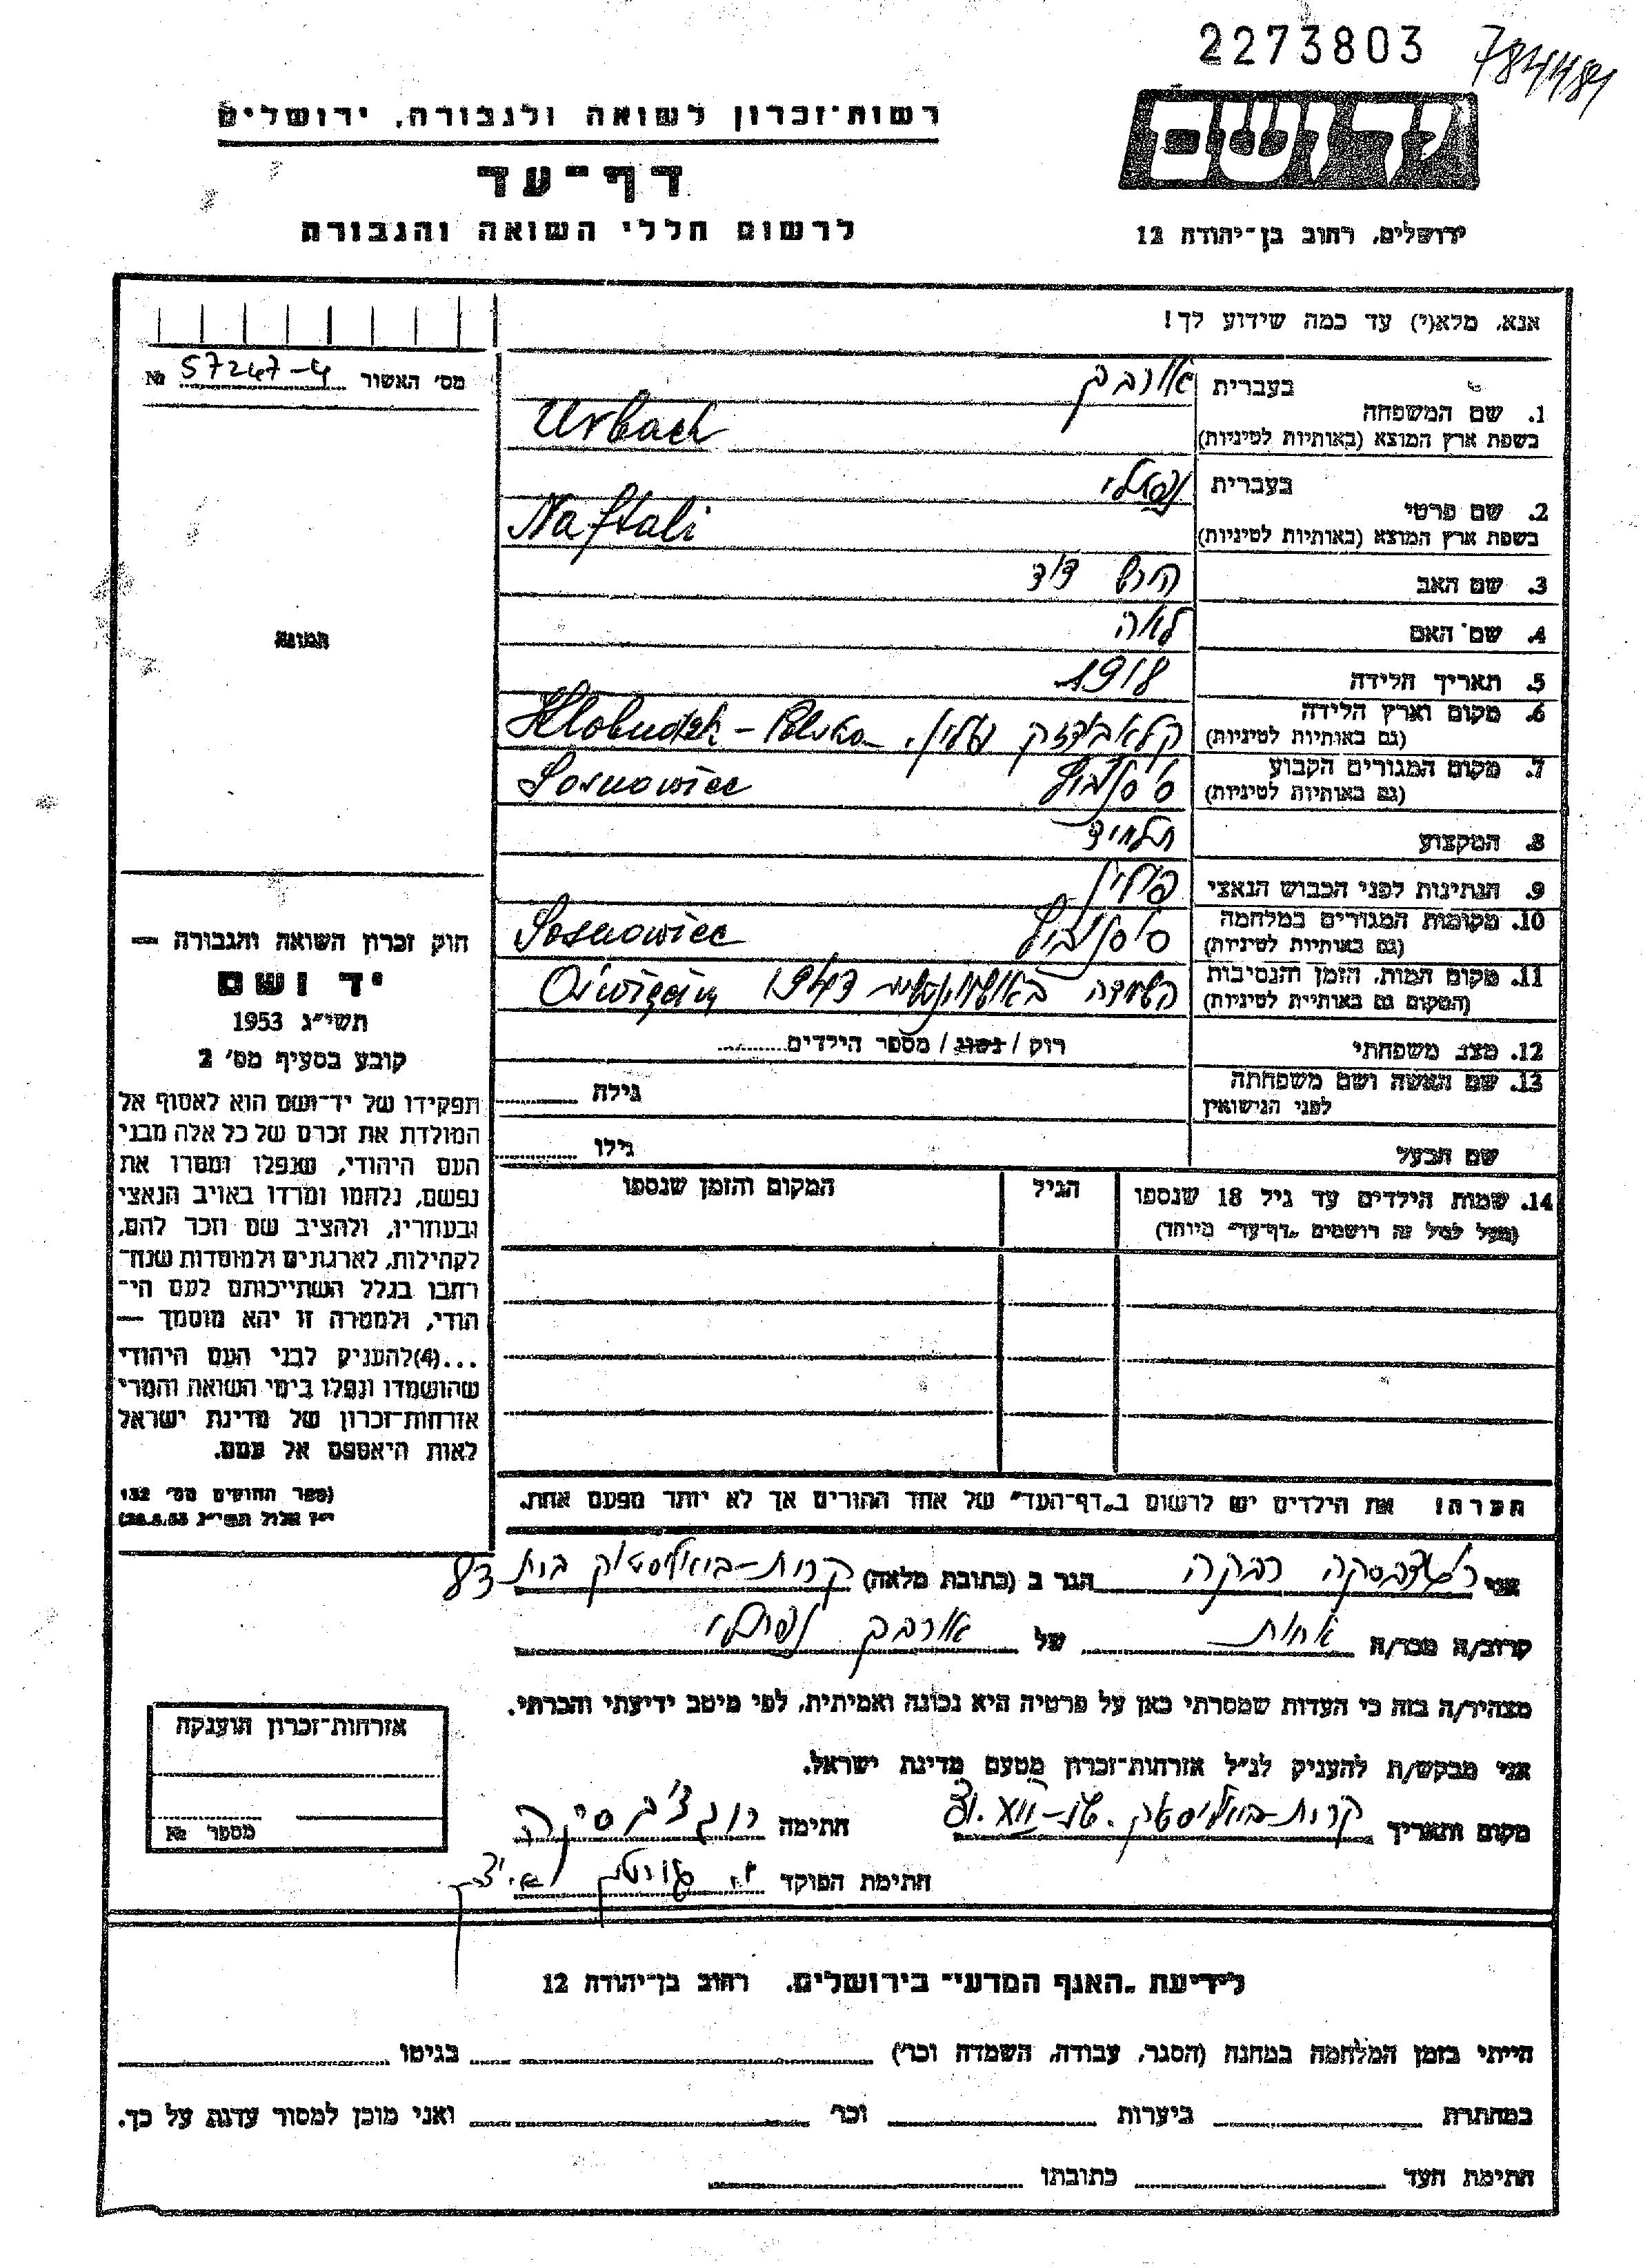 2273803
רשות־זכרון לשואה ולגבורה, ירושלים
יד ושם
דף־עד
לרשום חללי השואה והגבורה
ירושלים, רחוב בן־יהודה 12
אנא, מלא(י) עד כמה שידוע לך!
מס׳ האשור № 57247-4
1. שם המשפחה
בעברית אורבך
בשפת ארץ המוצא (באותיות לטיניות) Urbach
2. שם פרטי
בעברית נפתלי
בשפת ארץ המוצא (באותיות לטיניות) Naftali
3. שם האב הרש דוד
4. שם האם לאה
תמונה
5. תאריך הלידה 1918
6. מקום וארץ הלידה
(גם באותיות לטיניות) פולין. – Polska
7. מקום המגורים הקבוע
(גם באותיות לטיניות) Sosnowiec
8. המקצוע תלמיד
9. הנתינות לפני הכבוש הנאצי פולין
10. מקומות המגורים במלחמה
(גם באותיות לטיניות) Sosnowiec
11. מקום המות, הזמן והנסיבות
(המקום גם באותיות לטיניות) 1943 Oświęcim
12. מצב משפחתי רוק / נשוי / מספר הילדים
13. שם האשה ושם משפחתה
לפני הנישואין גילה
שם הבעל גילו
14. שמות הילדים עד גיל 18 שנספו
(מעל לגיל זה רושמים „דף־עד״ מיוחד)
הגיל
המקום והזמן שנספו
חוק זכרון השואה והגבורה —
יד ושם
תשי״ג 1953
קובע בסעיף מס׳ 2
תפקידו של יד־ושם הוא לאסוף אל
המולדת את זכרם של כל אלה מבני
העם היהודי, שנפלו ומסרו את
נפשם, נלחמו ומרדו באויב הנאצי
ובעוזריו, ולהציב שם וזכר להם,
לקהילות, לארגונים ולמוסדות שנח־
רבו בגלל השתייכותם לעם הי־
הודי, ולמטרה זו יהא מוסמך —
...(4)להעניק לבני העם היהודי
שהושמדו ונפלו בימי השואה והמרי
אזרחות־זכרון של מדינת ישראל
לאות היאספם אל עמם.
(ספר החוקים מס׳ 132
י״ז אלול תשי״ג 28.8.53)
הערה! את הילדים יש לרשום ב„דף־העד״ של אחד ההורים אך לא יותר מפעם אחת.
אני רבקה הגר ב (כתובת מלאה) קרית-ביאליסטוק בית 83
קרוב/ה מכר/ה אחות של אורבך נפתלי
מצהיר/ה בזה כי העדות שמסרתי כאן על פרטיה היא נכונה ואמיתית, לפי מיטב ידיעתי והכרתי.
אני מבקש/ת להעניק לנ״ל אזרחות־זכרון מטעם מדינת ישראל.
מקום ותאריך קרית-ביאליסטוק. חתימה
חתימת הפוקד
אזרחות־זכרון הוענקה
מספר №
לידיעת „האגף המדעי״ בירושלים, רחוב בן־יהודה 12
הייתי בזמן המלחמה במחנה (הסגר, עבודה, השמדה וכר׳) בגיטו
במחתרת ביערות וכר׳ ואני מוכן למסור עדות על כך.
חתימת העד כתובתו